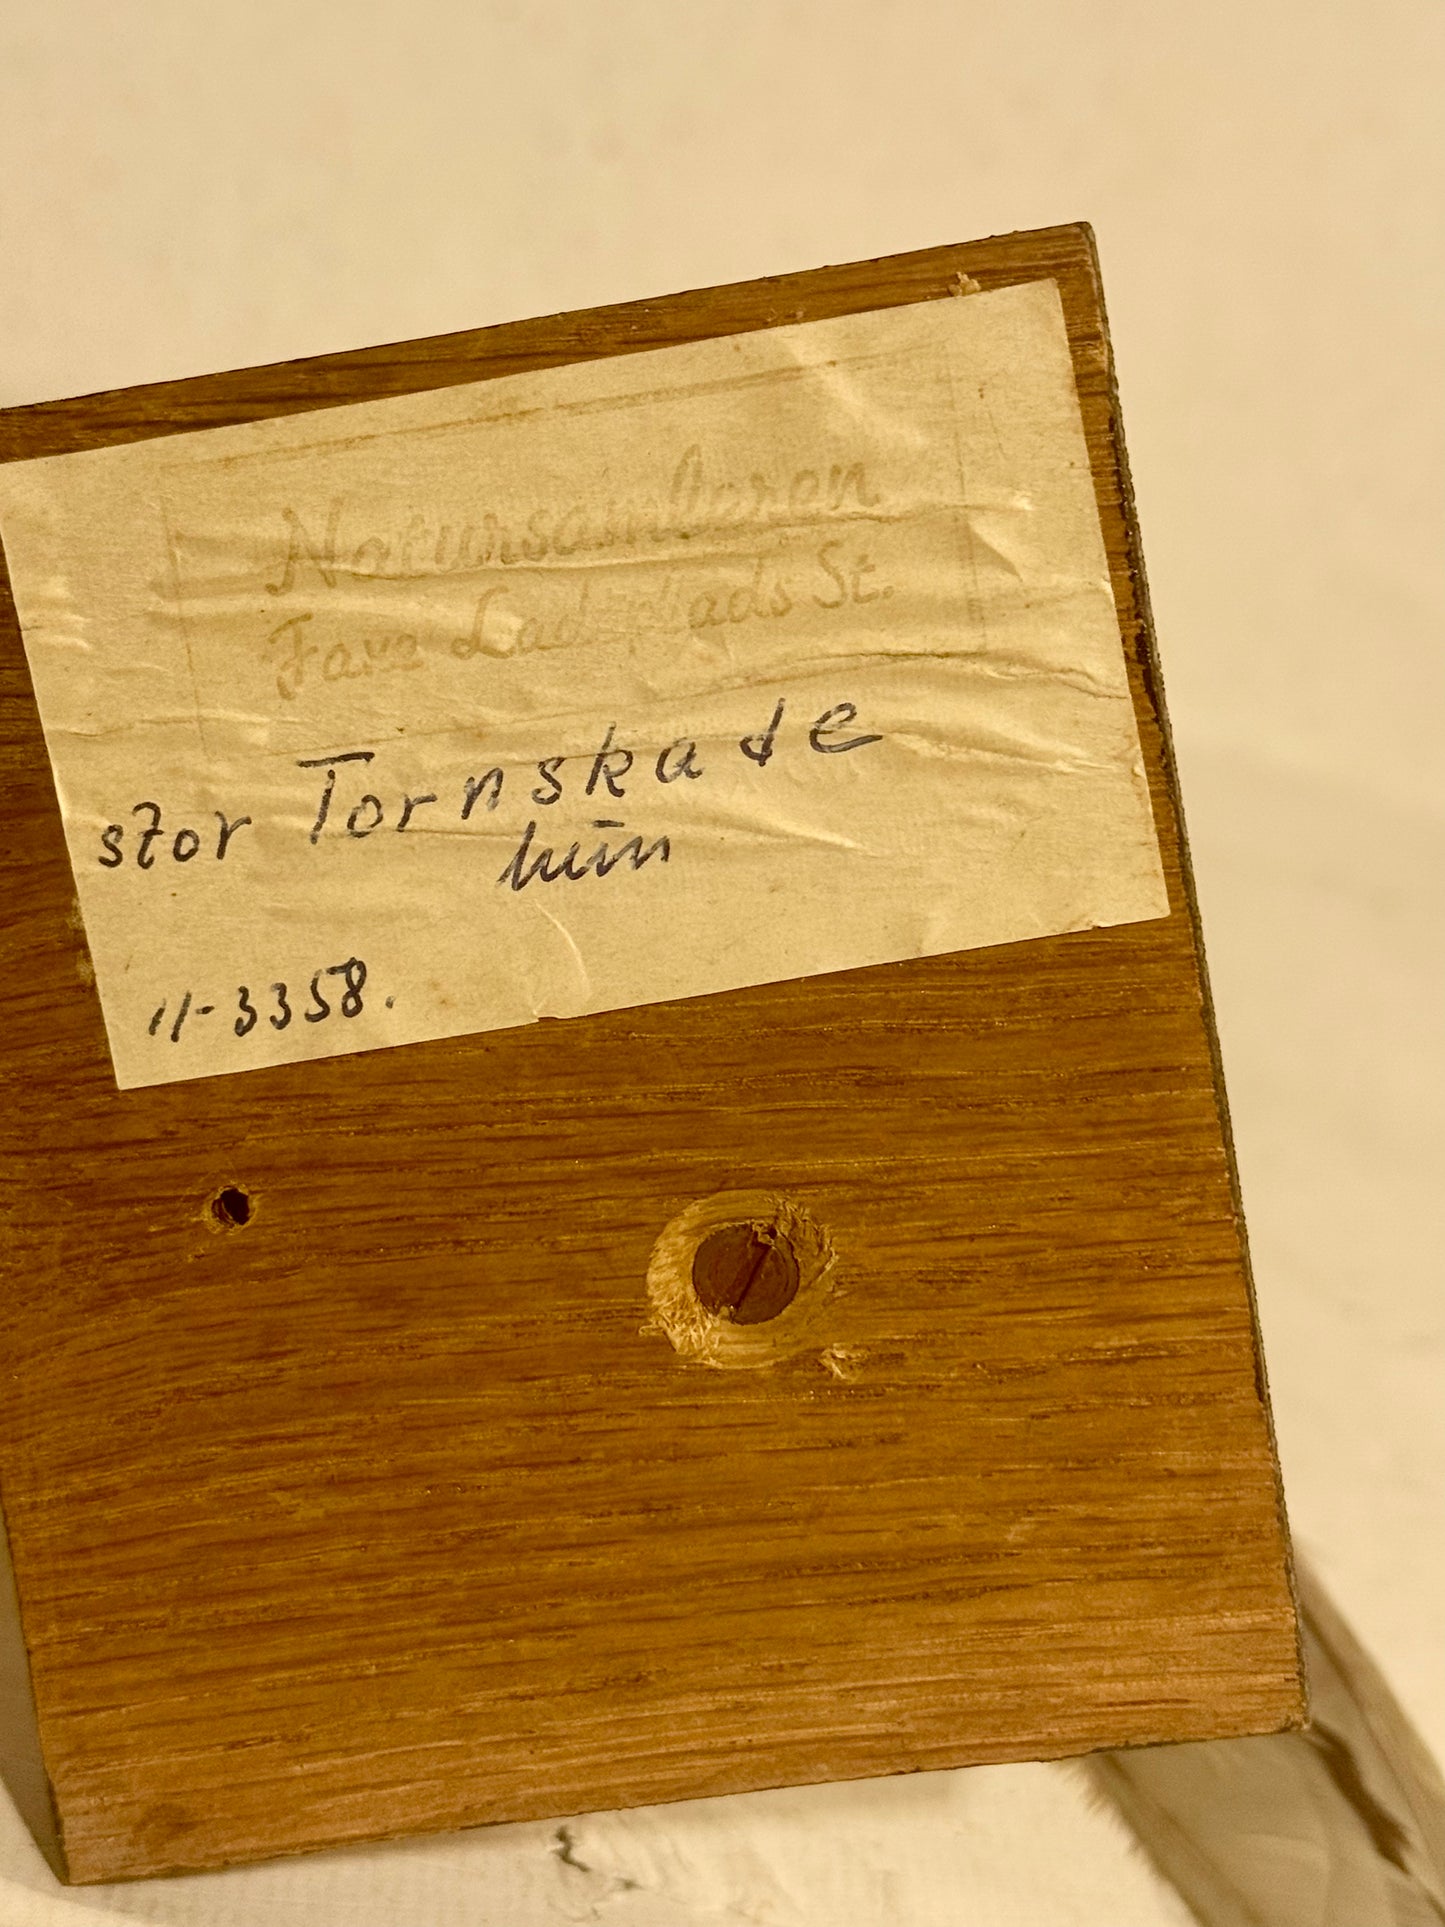 Natursamleren
Faxe Ladeplads St.
stor Tornskade
hūn
11-3358.